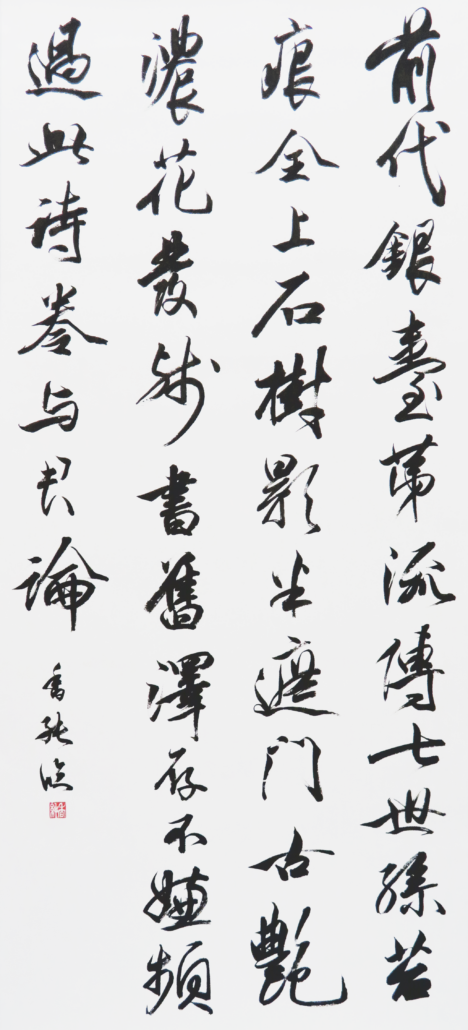 前代銀臺第流傳七世孫苔
痕全上石樹影半遮門古艷
濃花發殘書舊澤存不嫌頻
過此詩卷与君論
臨